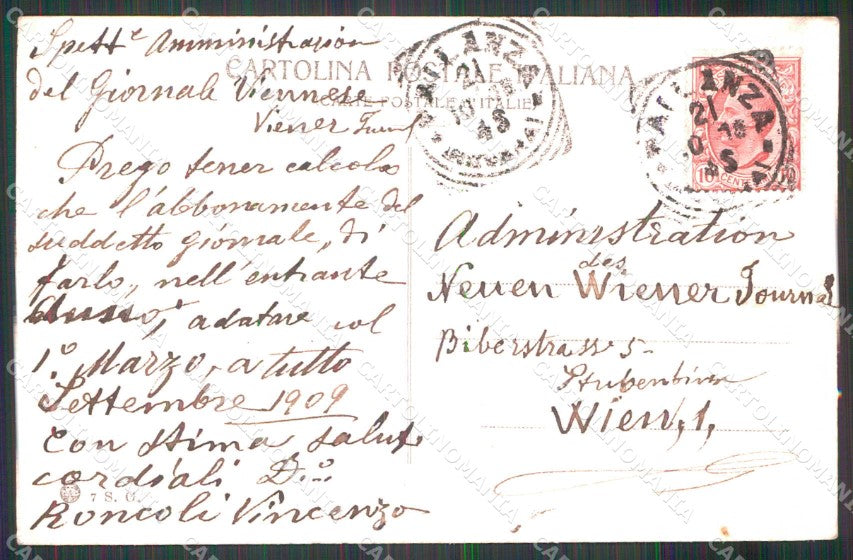 Spett.e Amministrazion
del Giornale Viennese
Viener
Prego tener calcolo
che l'abbonamento del
suddetto giornale, di
farlo, nell'entrante
anno, a datare col
1.º Marzo, a tutto
Settembre 1909
Con stima saluti
cordiali D.º
Roncoli Vincenzo
CARTOLINA POSTALE ITALIANA
CARTE POSTALE D'ITALIE
7 S. U.
PALLANZA
21
PALLANZA
21
10 CENT
Administration
des
Neuen Wiener Journal
Biberstrasse 5
Wien, 1,
CARTOLINOMANIA